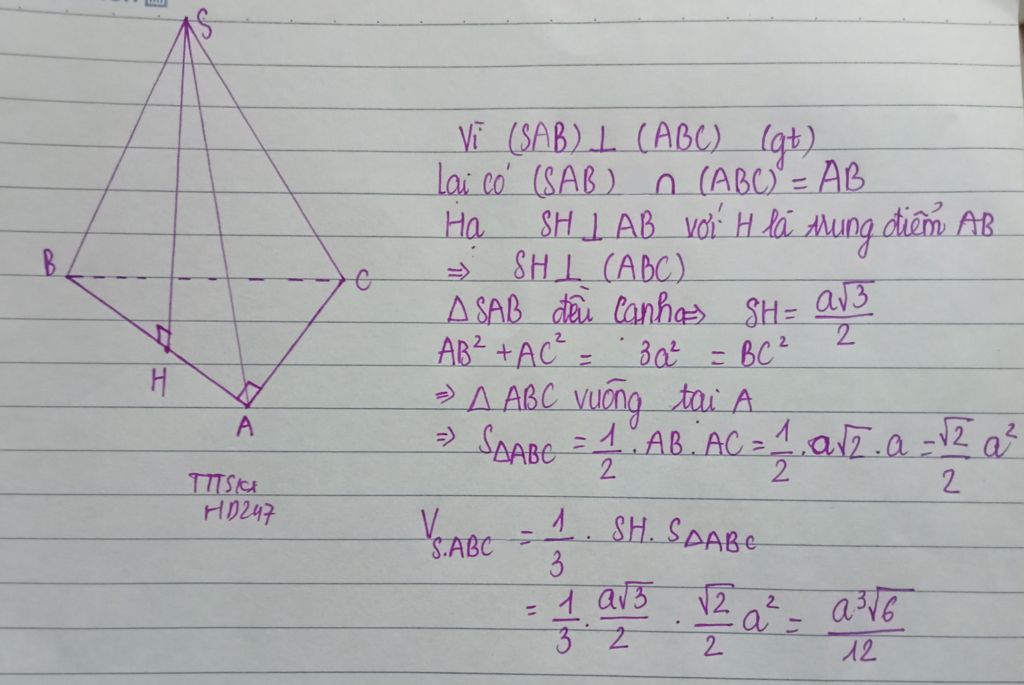 S
B
C
H
A
TTTSKX
HD247
Vì (SAB) ⊥ (ABC) (gt)
Lại có (SAB) ∩ (ABC) = AB
Hạ SH ⊥ AB với H là trung điểm AB
⇒ SH ⊥ (ABC)
ΔSAB đều cạnh a ⇒ SH = a√3/2
AB² + AC² = 3a² = BC²
⇒ Δ ABC vuông tại A
⇒ SΔABC = 1/2 . AB . AC = 1/2 . a√2 . a = √2/2 a²
V S.ABC = 1/3 . SH . SΔABC
= 1/3 . a√3/2 . √2/2 a² = a³√6/12